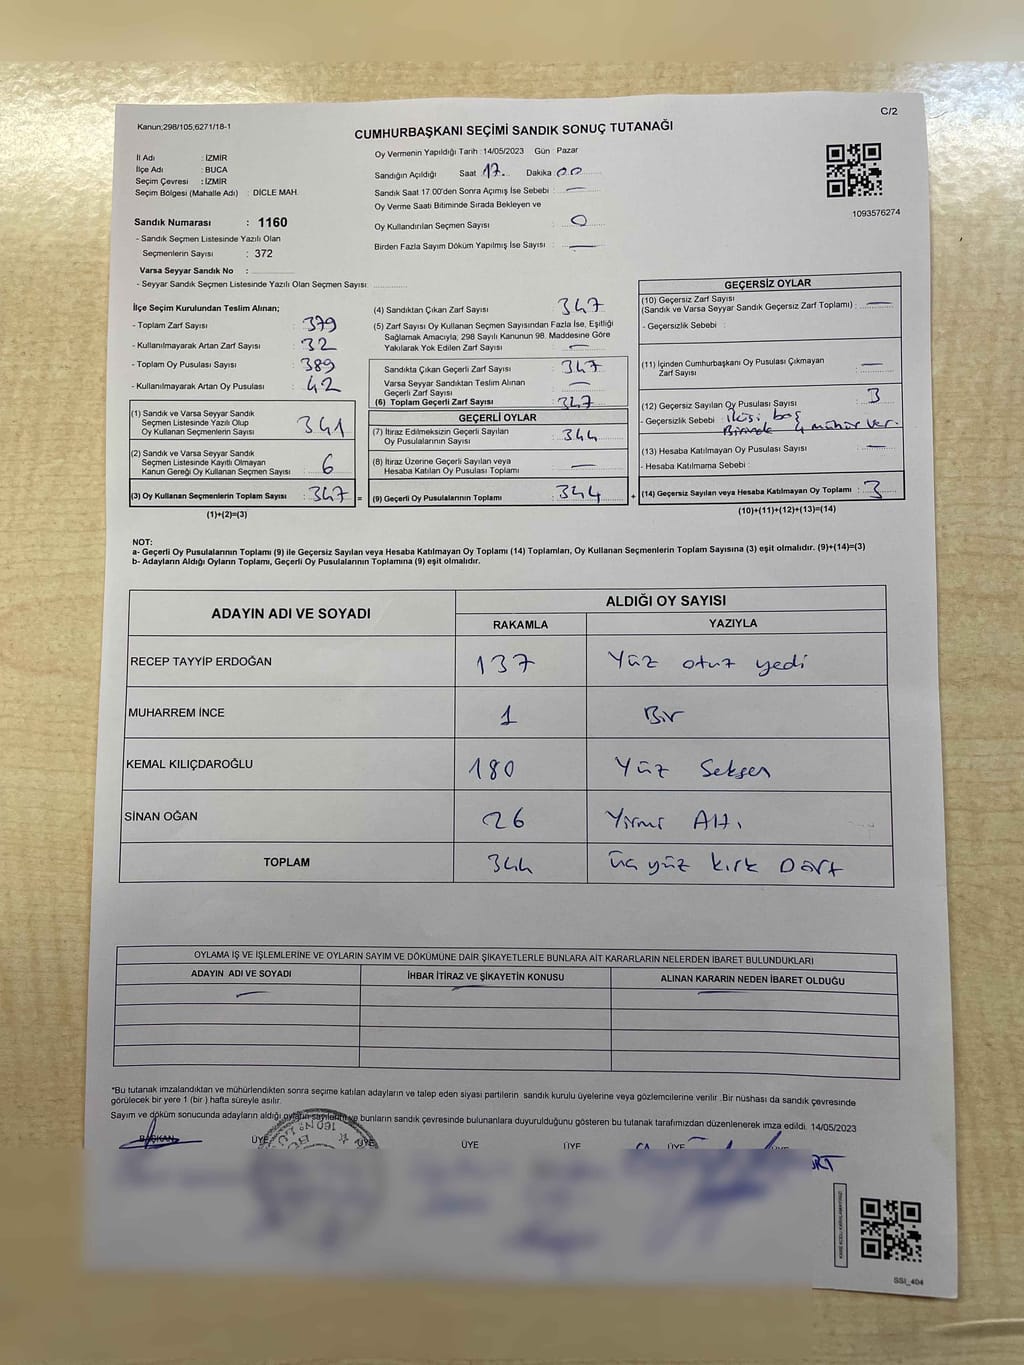 C/2
Kanun;298/105,6271/18-1
CUMHURBAŞKANI SEÇİMİ SANDIK SONUÇ TUTANAĞI
İl Adı : İZMİR
İlçe Adı : BUCA
Seçim Çevresi : İZMİR
Seçim Bölgesi (Mahalle Adı) : DİCLE MAH.
Sandık Numarası : 1160
- Sandık Seçmen Listesinde Yazılı Olan
Seçmenlerin Sayısı : 372
Varsa Seyyar Sandık No :
- Seyyar Sandık Seçmen Listesinde Yazılı Olan Seçmen Sayısı:
Oy Vermenin Yapıldığı Tarih : 14/05/2023 Gün : Pazar
Sandığın Açıldığı Saat 17. Dakika 00
Sandık Saat 17.00'den Sonra Açımış İse Sebebi : —
Oy Verme Saati Bitiminde Sırada Bekleyen ve
Oy Kullandırılan Seçmen Sayısı : 0
Birden Fazla Sayım Döküm Yapılmış İse Sayısı : —
1093576274
İlçe Seçim Kurulundan Teslim Alınan;
- Toplam Zarf Sayısı : 379
- Kullanılmayarak Artan Zarf Sayısı : 32
- Toplam Oy Pusulası Sayısı : 389
- Kullanılmayarak Artan Oy Pusulası : 42
(1) Sandık ve Varsa Seyyar Sandık
Seçmen Listesinde Yazılı Olup
Oy Kullanan Seçmenlerin Sayısı : 341
(2) Sandık ve Varsa Seyyar Sandık
Seçmen Listesinde Kayıtlı Olmayan
Kanun Gereği Oy Kullanan Seçmen Sayısı : 6
(3) Oy Kullanan Seçmenlerin Toplam Sayısı : 347 =
(1)+(2)=(3)
(4) Sandıktan Çıkan Zarf Sayısı : 347
(5) Zarf Sayısı Oy Kullanan Seçmen Sayısından Fazla İse, Eşitliği
Sağlamak Amacıyla, 298 Sayılı Kanunun 98. Maddesine Göre
Yakılarak Yok Edilen Zarf Sayısı : —
Sandıkta Çıkan Geçerli Zarf Sayısı : 347
Varsa Seyyar Sandıktan Teslim Alınan
Geçerli Zarf Sayısı : —
(6) Toplam Geçerli Zarf Sayısı : 347
GEÇERLİ OYLAR
(7) İtiraz Edilmeksizin Geçerli Sayılan
Oy Pusulalarının Sayısı : 344
(8) İtiraz Üzerine Geçerli Sayılan veya
Hesaba Katılan Oy Pusulası Toplamı : —
(9) Geçerli Oy Pusulalarının Toplamı : 344 +
GEÇERSİZ OYLAR
(10) Geçersiz Zarf Sayısı
(Sandık ve Varsa Seyyar Sandık Geçersiz Zarf Toplamı) : —
- Geçersizlik Sebebi :
(11) İçinden Cumhurbaşkanı Oy Pusulası Çıkmayan
Zarf Sayısı : —
(12) Geçersiz Sayılan Oy Pusulası Sayısı : 3
- Geçersizlik Sebebi : ikisi boş
Birinde 4 mühür var.
(13) Hesaba Katılmayan Oy Pusulası Sayısı : —
- Hesaba Katılmama Sebebi :
(14) Geçersiz Sayılan veya Hesaba Katılmayan Oy Toplamı : 3
(10)+(11)+(12)+(13)=(14)
NOT:
a- Geçerli Oy Pusulalarının Toplamı (9) ile Geçersiz Sayılan veya Hesaba Katılmayan Oy Toplamı (14) Toplamları, Oy Kullanan Seçmenlerin Toplam Sayısına (3) eşit olmalıdır. (9)+(14)=(3)
b- Adayların Aldığı Oyların Toplamı, Geçerli Oy Pusulalarının Toplamına (9) eşit olmalıdır.
ADAYIN ADI VE SOYADI ALDIĞI OY SAYISI
RAKAMLA YAZIYLA
RECEP TAYYİP ERDOĞAN 137 Yüz otuz yedi
MUHARREM İNCE 1 Bir
KEMAL KILIÇDAROĞLU 180 Yüz Seksen
SİNAN OĞAN 26 Yirmi Altı
TOPLAM 344 üç yüz kırk Dört
OYLAMA İŞ VE İŞLEMLERİNE VE OYLARIN SAYIM VE DÖKÜMÜNE DAİR ŞİKAYETLERLE BUNLARA AİT KARARLARIN NELERDEN İBARET BULUNDUKLARI
ADAYIN ADI VE SOYADI İHBAR İTİRAZ VE ŞİKAYETİN KONUSU ALINAN KARARIN NEDEN İBARET OLDUĞU
— — —
*Bu tutanak imzalandıktan ve mühürlendikten sonra seçime katılan adayların ve talep eden siyasi partilerin sandık kurulu üyelerine veya gözlemcilerine verilir .Bir nüshası da sandık çevresinde
görülecek bir yere 1 (bir ) hafta süreyle asılır.
Sayım ve döküm sonucunda adayların aldığı oyların sayılarını ve bunların sandık çevresinde bulunanlara duyurulduğunu gösteren bu tutanak tarafımızdan düzenlenerek imza edildi. 14/05/2023
BAŞKAN ÜYE ÜYE ÜYE ÜYE ÜYE ÜYE
SSI_404